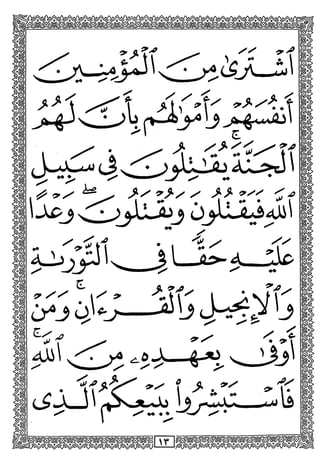 ٱشۡتَرَىٰ مِنَ ٱلۡمُؤۡمِنِينَ
أَنفُسَهُمۡ وَأَمۡوَٰلَهُم بِأَنَّ لَهُمُ
ٱلۡجَنَّةَۚ يُقَٰتِلُونَ فِي سَبِيلِ
ٱللَّهِ فَيَقۡتُلُونَ وَيُقۡتَلُونَۖ وَعۡدًا
عَلَيۡهِ حَقّٗا فِي ٱلتَّوۡرَىٰةِ
وَٱلۡإِنجِيلِ وَٱلۡقُرۡءَانِۚ وَمَنۡ
أَوۡفَىٰ بِعَهۡدِهِۦ مِنَ ٱللَّهِۚ
فَٱسۡتَبۡشِرُواْ بِبَيۡعِكُمُ ٱلَّذِي
١٣